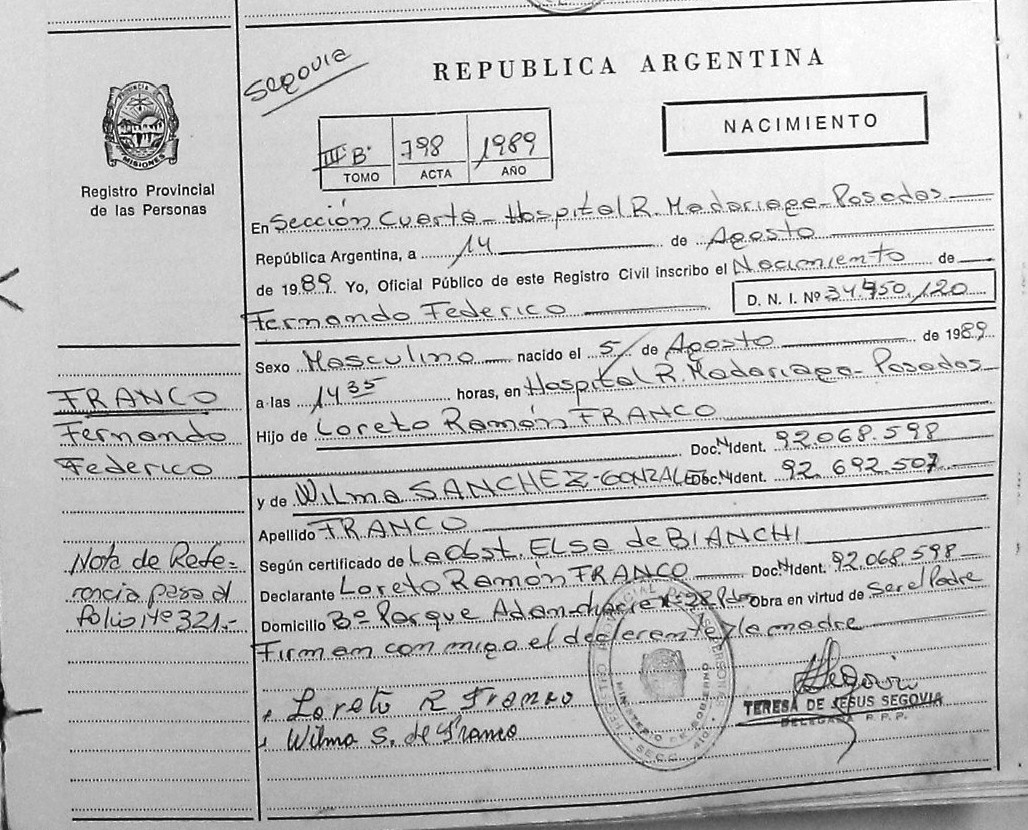 Segovia
REPUBLICA ARGENTINA
NACIMIENTO
III B° 798 1989
TOMO ACTA AÑO
PROVINCIA DE MISIONES
Registro Provincial
de las Personas
En Sección Cuarta - Hospital R. Madariaga - Posadas
República Argentina, a 14 de Agosto
de 1989. Yo, Oficial Público de este Registro Civil inscribo el Nacimiento de
Fernando Federico D. N. I. Nº 34.450.120
Sexo Masculino nacido el 5 de Agosto de 1989
a las 14 35 horas, en Hospital R. Madariaga - Posadas
Hijo de Loreto Ramón FRANCO
Doc. N Ident. 92.068.598
y de Wilma SANCHEZ-GONZALEZ Doc. N Ident. 92.692.507
Apellido FRANCO
Según certificado de La Obst. Elsa de BIANCHI
Declarante Loreto Ramón FRANCO Doc. N Ident. 92.068.598
Domicilio Bº Parque Adam Obra en virtud de Ser el Padre
Firman conmigo el declarante y la madre
Loreto R Franco
Wilma S. de Franco
Segovia
TERESA DE JESUS SEGOVIA
DELEGADA R. P. P.
MINISTERIO DE GOBIERNO
FRANCO
Fernando
Federico
Nota de Refe-
rencia pasa al
folio Nº 321.-